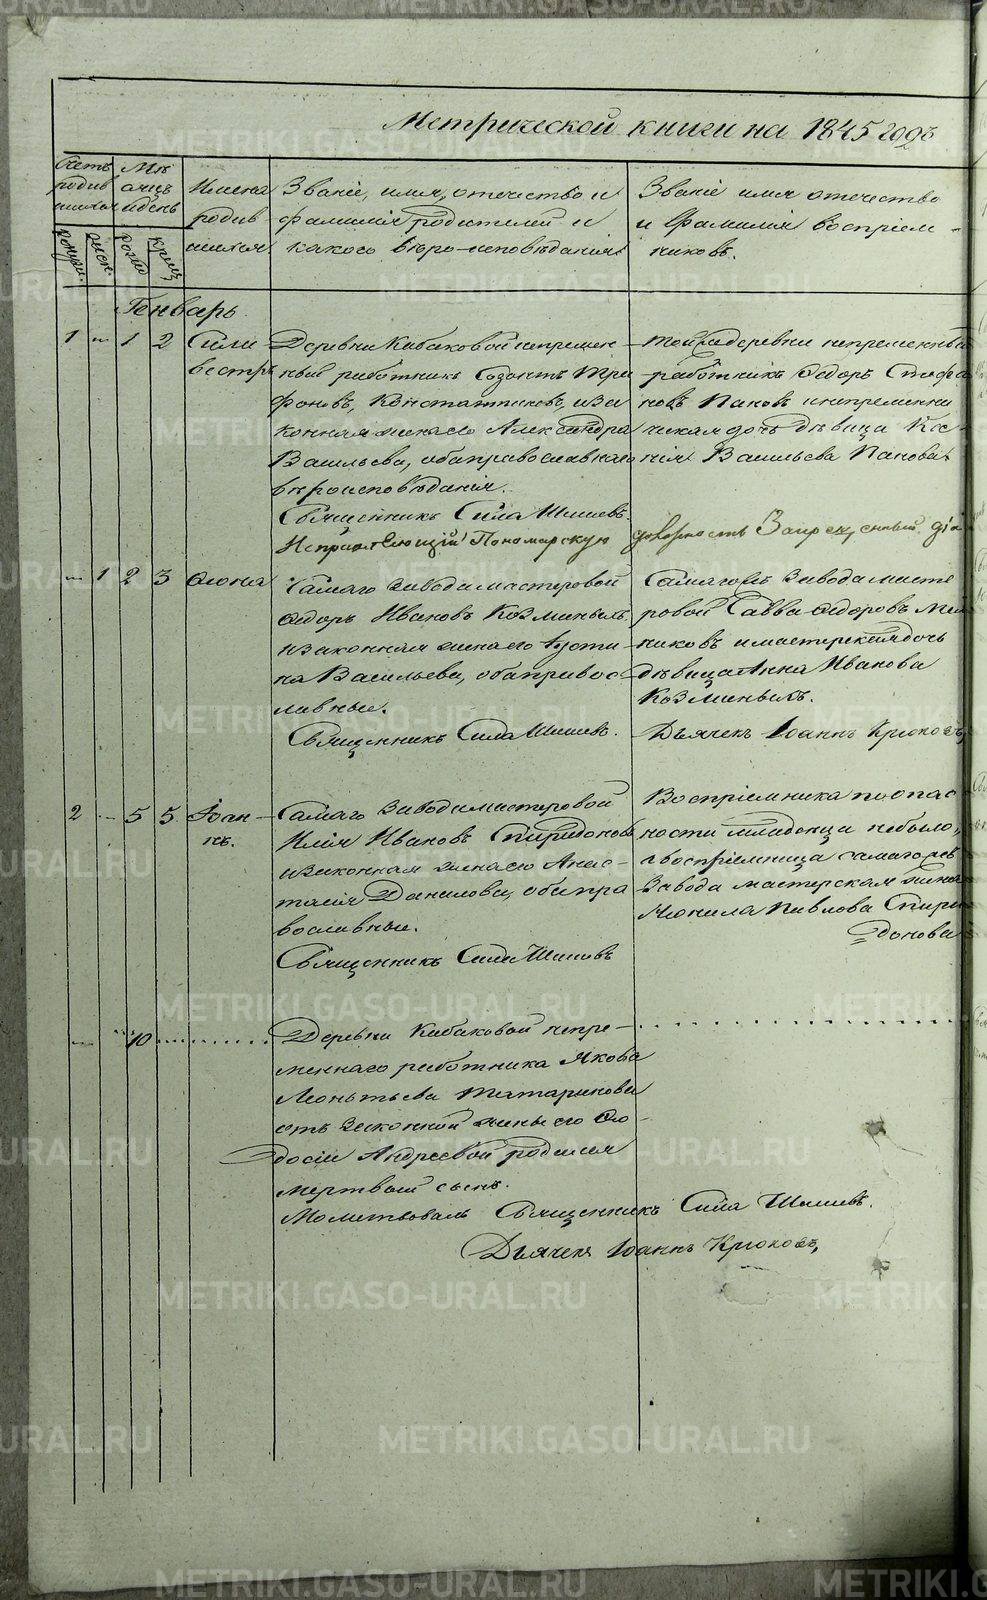 Метрической книги на 1845 годъ
Счетъ родив шихся
Мѣ сяцъ и день
Имена родив шихся.
Званіе, имя, отечество и
фамилія родителей и
какого вѣро-исповѣданія.
Званіе имя отечество
и фамилія воспріем-
никовъ.
мужес. женск. рожд. крещ.
Генварь.
1 — 1 2 Сили-
вестръ
Деревни Кабаковой непремен-
ный работникъ Созонтъ Три
фоновъ, Константиновъ, иза
конная жена его Александра
Васильева, оба православнаго
вѣроисповѣданія.
Священникъ Сила Шишевъ.
Исправляющій Пономарскую
Тойже деревни непременный
работникъ Ѳедоръ Стефа
новъ Пановъ и непременни
ческая дочь дѣвица Кс-
нія Васильева Панова.
должность Заирек
— 1 2 3
Самаго завода мастеровой
Ѳедоръ Ивановъ Козминыхъ,
и законная жена его Іусти
на Васильева, оба правос-
лавные.
Священникъ Сила Шишевъ.
Самагожъ завода масте
ровой Савва Ѳедоровъ
никовъ и мастерская дочь
дѣвица Анна Иванова
Козминыхъ.
Дьячекъ Іоаннъ Крюковъ,
2 — 5 5 Іоан-
нъ.
Самаго завода мастеровой
Илія Ивановъ Спиридоновъ
и законная жена его Анас-
тасія Данилова, оба пра
вославные.
Священникъ Сила Шишовъ
Воспріемника по опас
ности младенца небыло,
а воспріемница самагожъ
завода мастерская жена
Неонила Павлова Спири
донова
— 10
Деревни Кабаковой непре-
меннаго работника Якова
Леонтьева Татаринова
отъ законной жены его Ѳео-
досіи Андреевой родился
мертвый сынъ.
Молитвовалъ Священникъ Сила Шишевъ.
Дьячекъ Іоаннъ Крюковъ,
METRIKI.GASO-URAL.RU